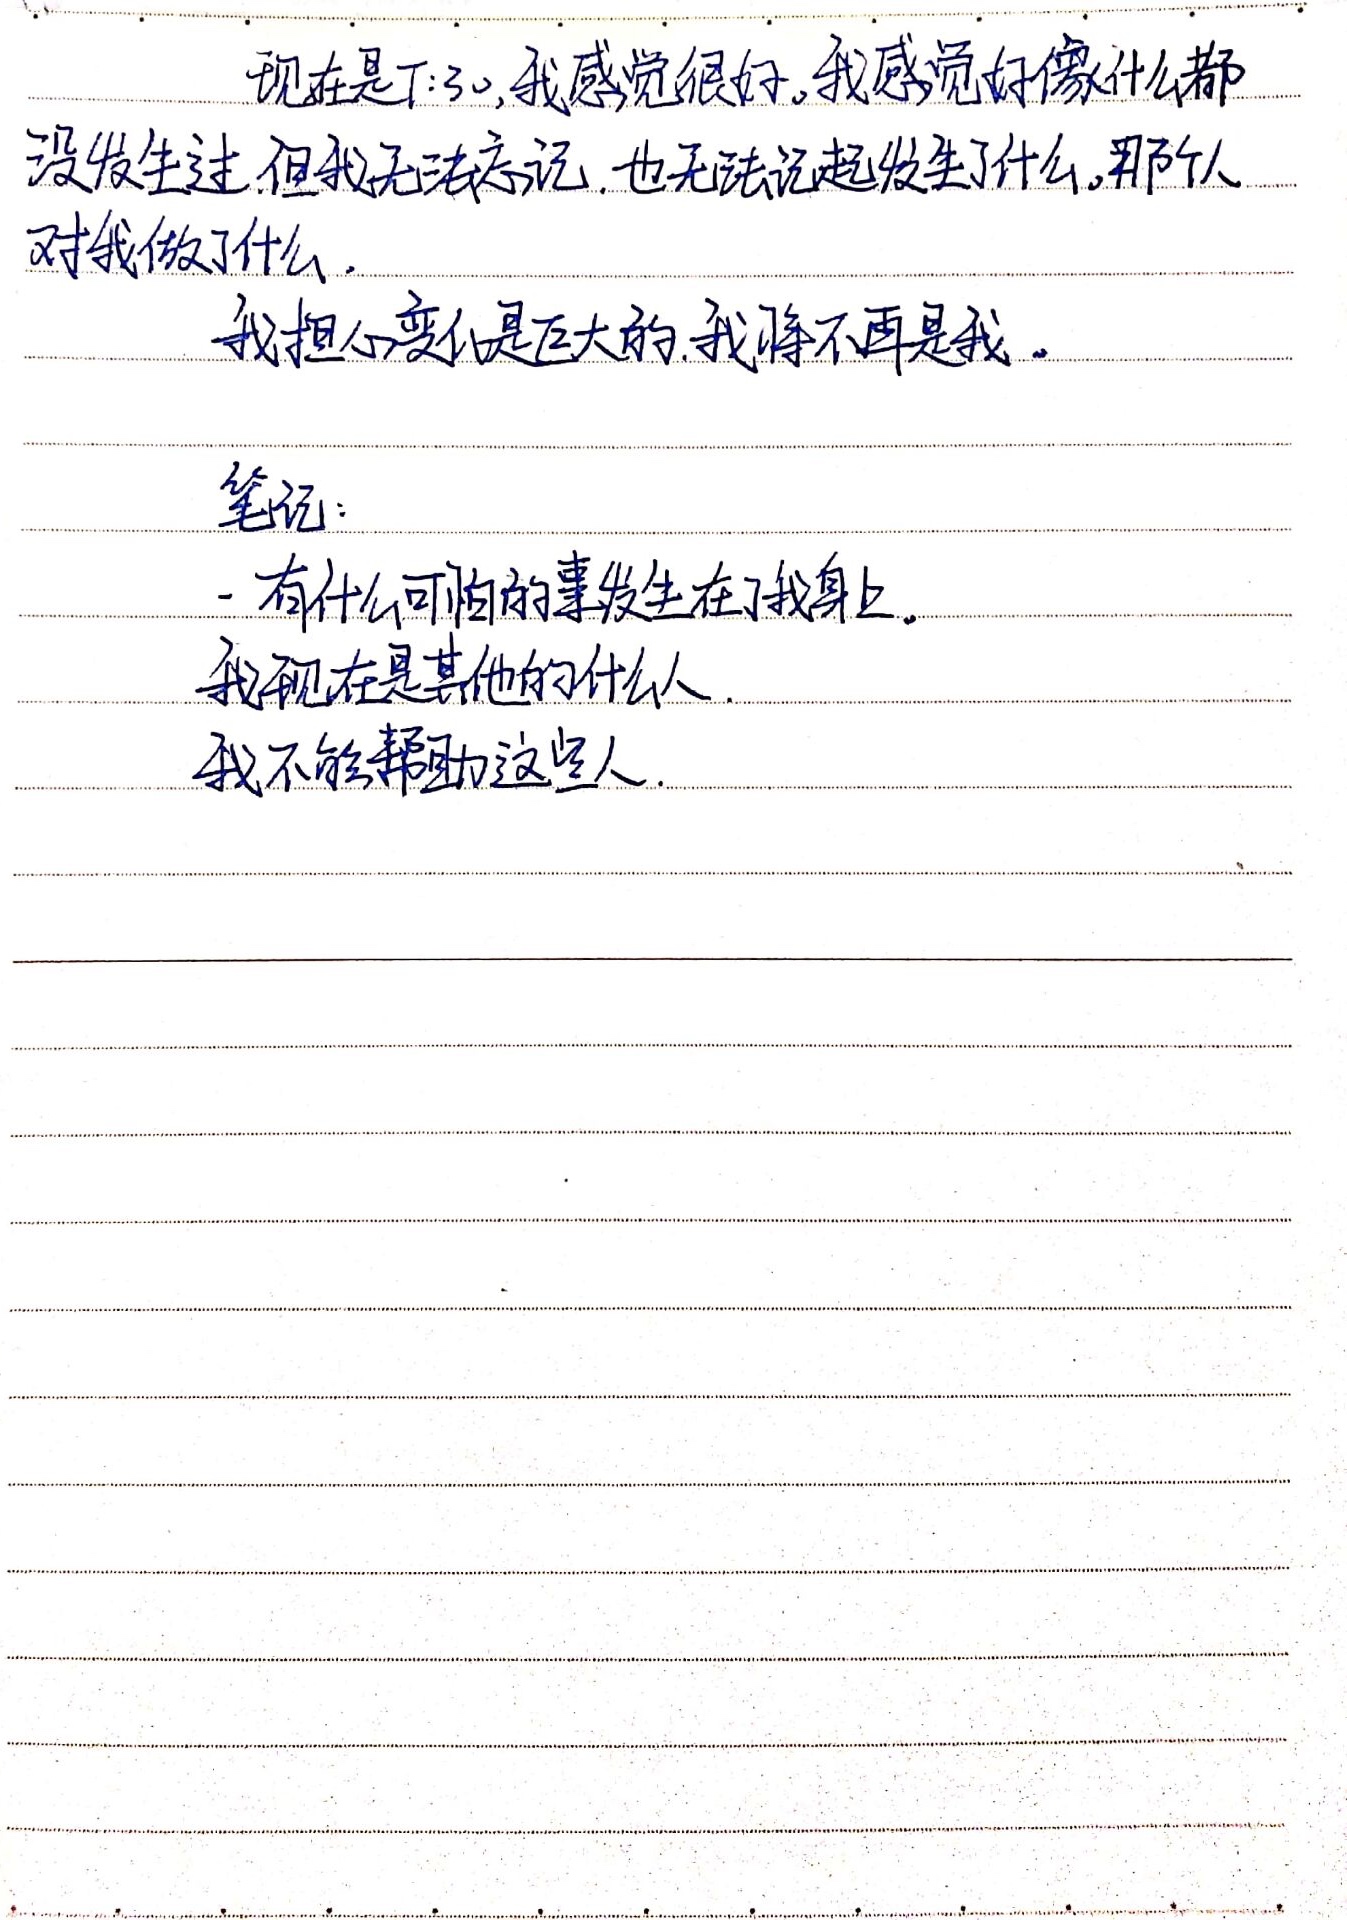 现在是T:30,我感觉很好。我感觉好像什么都
没发生过.但我无法忘记.也无法记起发生了什么。那个人
对我做了什么.
我担心变化是巨大的.我将不再是我。
笔记:
-有什么可怕的事发生在了我身上。
我现在是其他的什么人.
我不能帮助这些人.